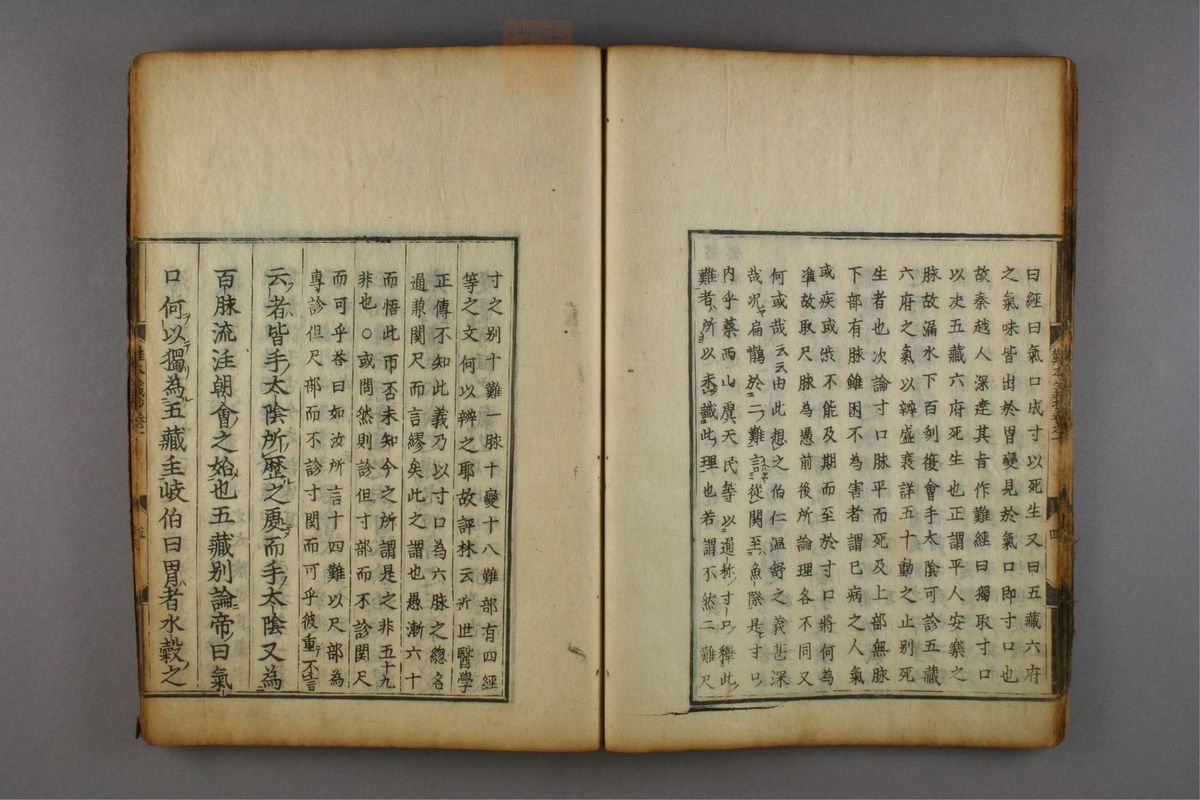 曰經曰氣口成寸以死生又曰五藏六府
之氣味皆出於胃變見於氣口即寸口也
故秦越人深達其旨作難經曰獨取寸口
以决五藏六府死生也正謂平人安樂之
脉故漏水下百刻復會手太陰可診五藏
六府之氣以辨盛衰詳五十動之止别死
生者也次論寸口脉平而死及上部無脉
下部有脉雖困不為害者謂已病之人氣
或疾或渋不能及期而至於寸口將何為
凖故取尺脉為憑前後所論理各不同又
何或哉云云由此想之伯仁温舒之義甚深
哉况ヤ扁鵲於二難言從関至魚際是寸口
内乎蔡西山虞天民等以通称寸口釋此
難者所以未識此理也若謂不然二難尺
難本義抄卷之一
四
寸之别十難一脉十變十八難部有四經
等之文何以辨之耶故評林云近世醫學
正傳不知此義乃以寸口為六脉之緫名
通兼関尺而言繆矣此之謂也愚漸六十
而悟此而否未知今之所謂是之非五十九
非也○或問然則診但寸部而不診関尺
而可乎答曰如汝所言十四難以尺部為
專診但尺部而不診寸関而可乎彼重不言
云者皆手太陰所歷之處而手太陰又為
百脉流注朝會之始也五藏别論帝曰氣
口何以獨為五藏主岐伯曰胃者水穀之
五